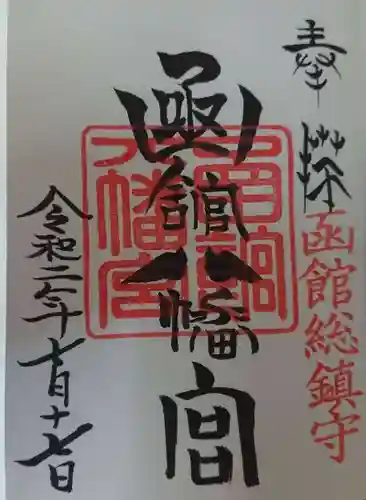 奉拝
函館総鎮守
函館八幡宮
函館八幡宮
令和二年十月十七日